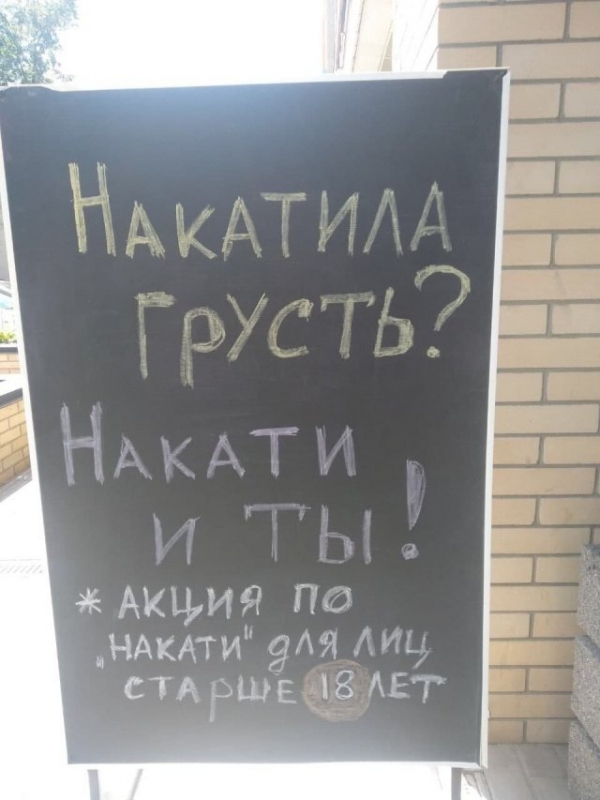 НАКАТИЛА
ГРУСТЬ?
НАКАТИ
И ТЫ!
* АКЦИЯ ПО
„НАКАТИ" ДЛЯ ЛИЦ
СТАРШЕ 18 ЛЕТ